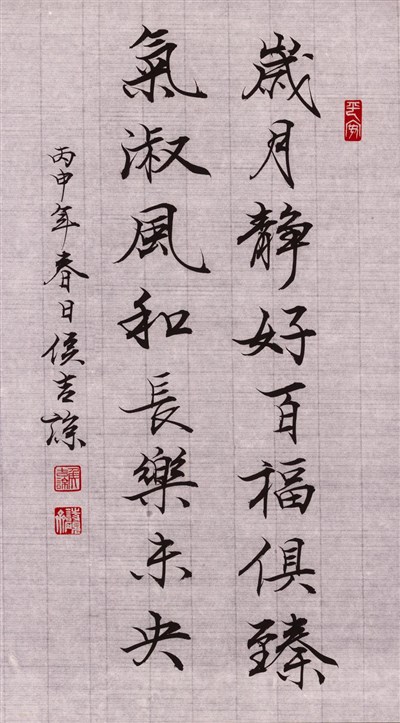 平安
歲月静好百福俱臻
氣淑風和長樂未央
丙申年春日侯吉諒